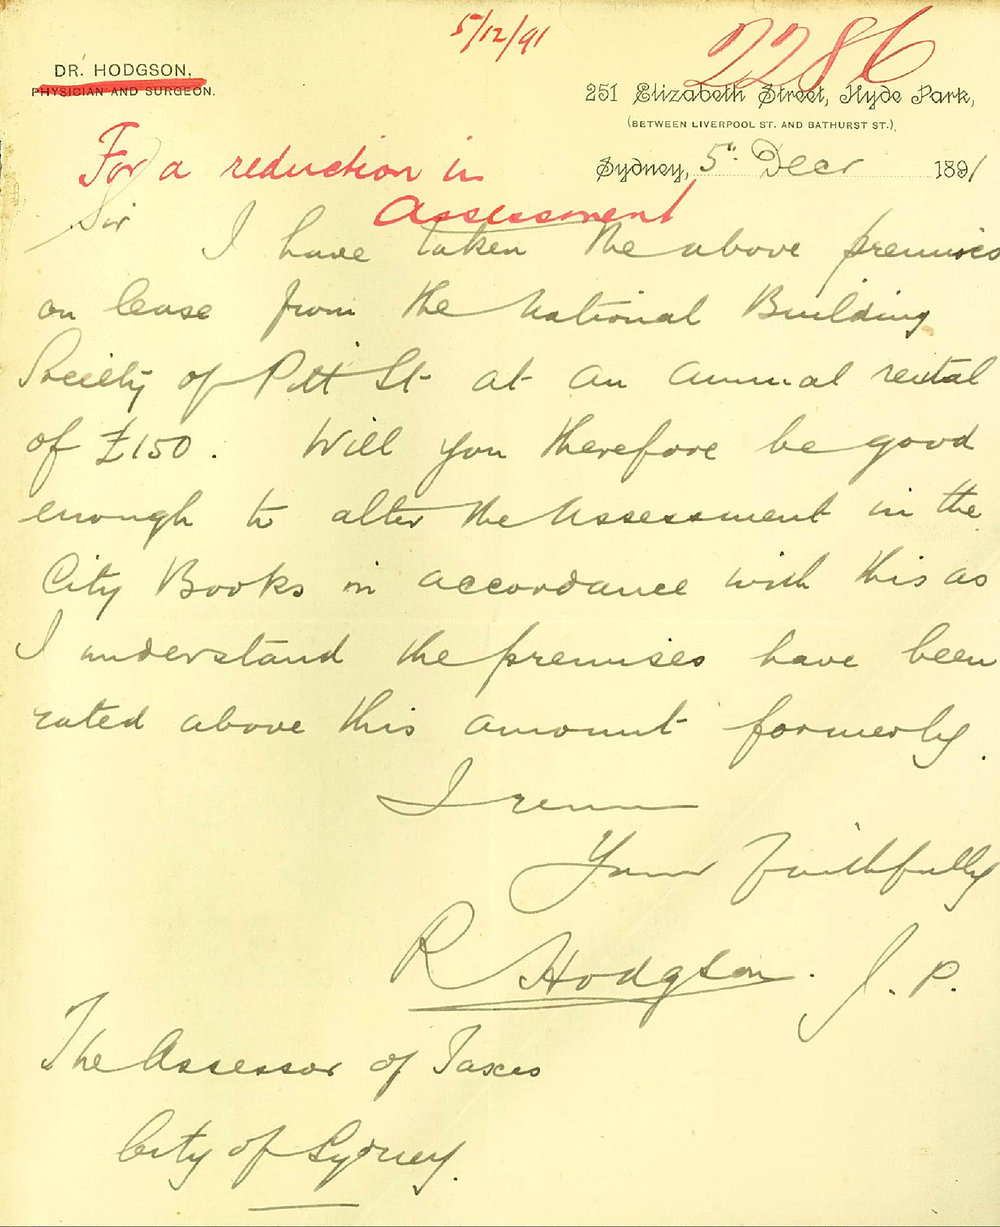 5/12/91
2286
DR. HODGSON,
PHYSICIAN AND SURGEON.
251 Elizabeth Street, Hyde Park,
(BETWEEN LIVERPOOL ST. AND BATHURST ST.),
Sydney, 5th Decr 1891
For a reduction in
Assessment
Sir
I have taken the above premises
on lease from the National Building
Society of Pitt St at an annual rental
of £150. Will you therefore be good
enough to alter the Assessment in the
City Books in accordance with this as
I understand the premises have been
rated above this amount formerly.
I remain
Yours Faithfully
R Hodgson. J.P.
The Assessor of Taxes
City of Sydney.